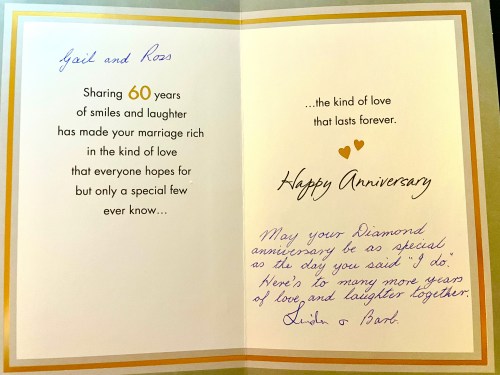 Gail and Ross
Sharing 60 years
of smiles and laughter
has made your marriage rich
in the kind of love
that everyone hopes for
but only a special few
ever know...
...the kind of love
that lasts forever.
Happy Anniversary
May your Diamond
anniversary be as special
as the day you said "I do."
Here's to many more years
of love and laughter together.
Linda & Barb.